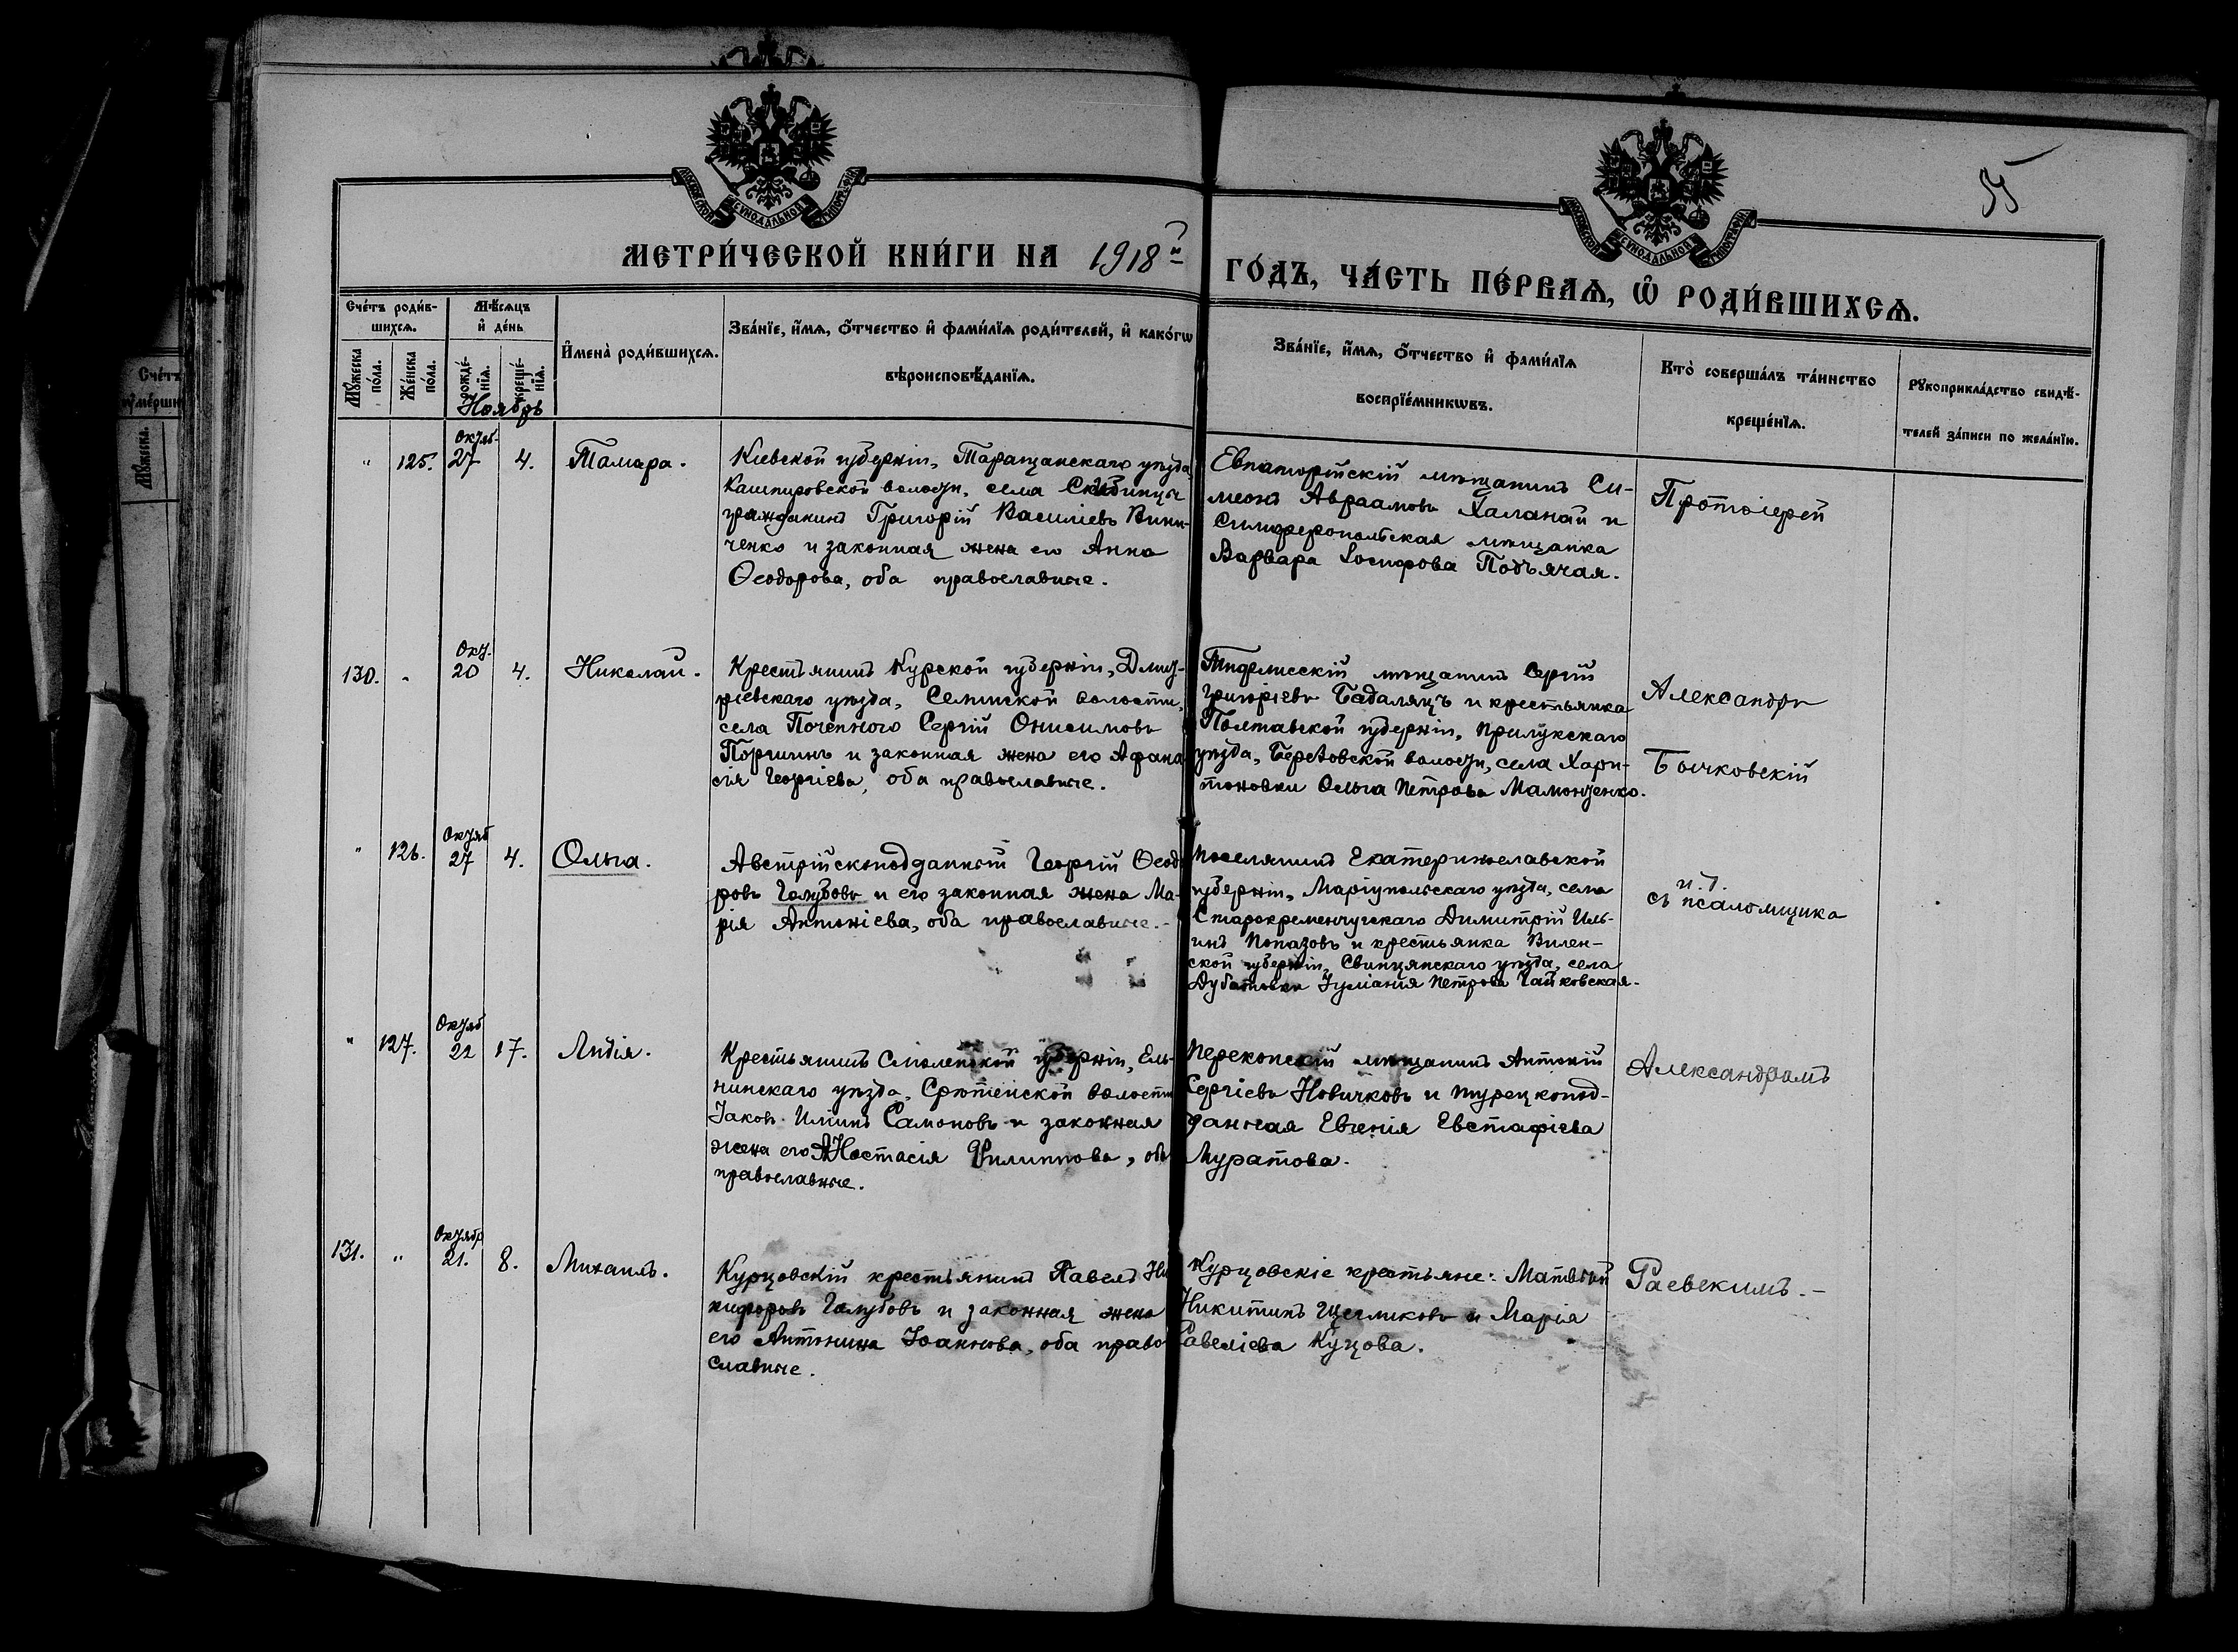 МОСКОВСКОЙ СѴНОДАЛЬНОЙ ТИПОГРАФІИ
МОСКОВСКОЙ СѴНОДАЛЬНОЙ ТИПОГРАФІИ
55
МЕТРИ́ЧЕСКОЙ КНИ́ГИ НА 1918й ГО́ДЪ, ЧА́СТЬ ПЕ́РВАѦ, Ѡ҆ РОДИ́ВШИХСѦ.
Сче́тъ роди́в-
шихсѧ.
Мꙋжеска по́ла.
Же́нска по́ла.
Мѣ́сѧцъ
и҆ де́нь
рожде́-нїѧ.
креще́-нїѧ.
И҆мена̀ роди́вшихсѧ.
Зва́нїе, и҆́мѧ, ѻ҆́тчество и҆ фами́лїѧ роди́телей, и҆ како́гѡ
вѣроисповѣ́данїѧ.
Зва́нїе, и҆́мѧ, ѻ҆́тчество и҆ фами́лїѧ
воспрїе́мникѡвъ.
Кто̀ соверша́лъ та́инство
креще́нїѧ.
Рꙋкоприкла́дство свидѣ́-
телей за́писи по жела́нїю.
Ноябрь
" 125. Октяб. 27 4. Тамара.
Кіевской губерніи, Таращанскаго уѣзда,
Кашперовской волости, села Скибинцы
гражданинъ Григорій Василіевъ Вини-
ченко и законная жена его Анна
Ѳеодорова, оба православные.
Евпаторійскій мѣщанинъ Си-
меонъ Авраамовъ Халанай и
Симферопольская мѣщанка
Варвара Іосифова Подъячая.
Протоіерей
130. " Окт. 20 4. Николай.
Крестьянинъ Курской губерніи, Дмит-
ріевскаго уѣзда, Селинской волости,
села Почепного Сергій Онисимовъ
и законная жена его Афана
сія Георгіева, оба православные.
Тифлисскій мѣщанинъ Сергій
Григоріевъ Бадалянцъ и крестьянка
Полтавской губерніи, Прилукскаго
уѣзда, Березовской волости, села Хари-
тоновки Ольга Петрова Мамонтенко.
Александръ
Бычковскій
" 126. Октяб 27 4. Ольга.
Австрійскоподданный Георгій Ѳеод
ровъ Голубовъ и его законная жена Ма-
рія Антоніева, оба православные.-
Поселянинъ Екатеринославской
губерніи, Маріупольскаго уѣзда, села
Старокременчугскаго Димитрій Иль-
инъ Попазовъ и крестьянка Вилен-
ской губерніи, Свинцянскаго уѣзда, села
Дубатовки Іуліанія Петрова Чайковская.
съ и. д. псаломщика
" 127. Октяб 22 17. Лидія.
Крестьянинъ Смоленской губерніи, Ель-
нинскаго уѣзда, волости
Іаковъ Ильинъ Самоновъ и законная
жена его Анастасія Филиппова, оба
православные.
Перекопскій мѣщанинъ Антоній
Сергіевъ Новичковъ и турецкопод-
данная Евгенія Евстафіева
Муратова.
Александромъ
131. " Октябр 21. 8. Михаилъ.
Курцовскій крестьянинъ Павелъ Ни
кифоровъ Голубовъ и законная жена
его Антонина Іоаннова, оба право
славные.
Курцовскіе крестьяне: Матвѣй
Никитинъ Щегликовъ и Марія
Савеліева Куцова.
Раевскимъ.-